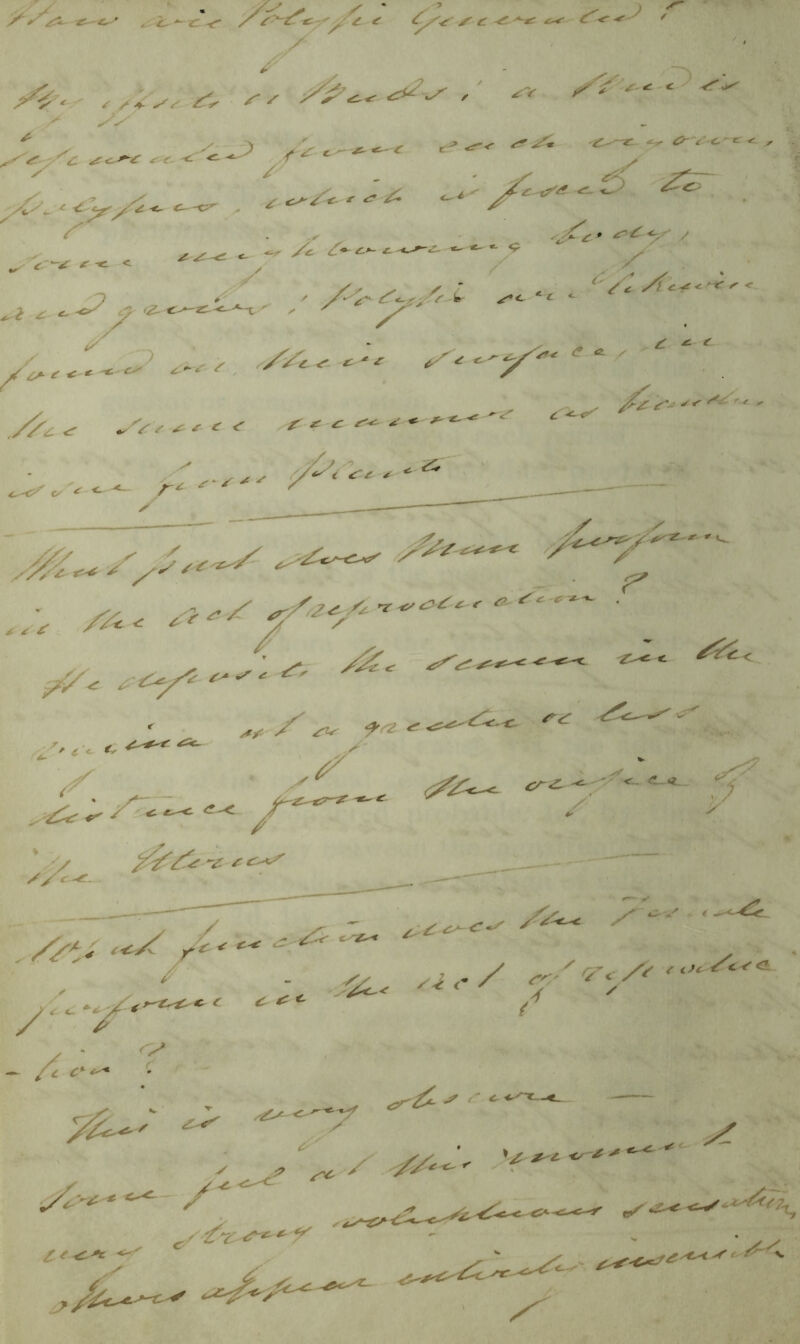 How are Polypi Generated?
By offsets or Buds; a Bud is
separated from each vigorous
polypus, which is fixed to
some neighbouring body,
and grows; Polypi are likewise
found on their surface, in
the same manner as branches
issue from Plants
What part does Man perform
in the Act of reproduction?
He deposits the semen in the
vagina at a greater or less
distance from the orifice of
the Uterus
What function does the Female
perform in the act of reproduc
-tion?
This is very obscure —
Some feel at this moment
very strong voluptuous sensation,
others appear entirely insensible